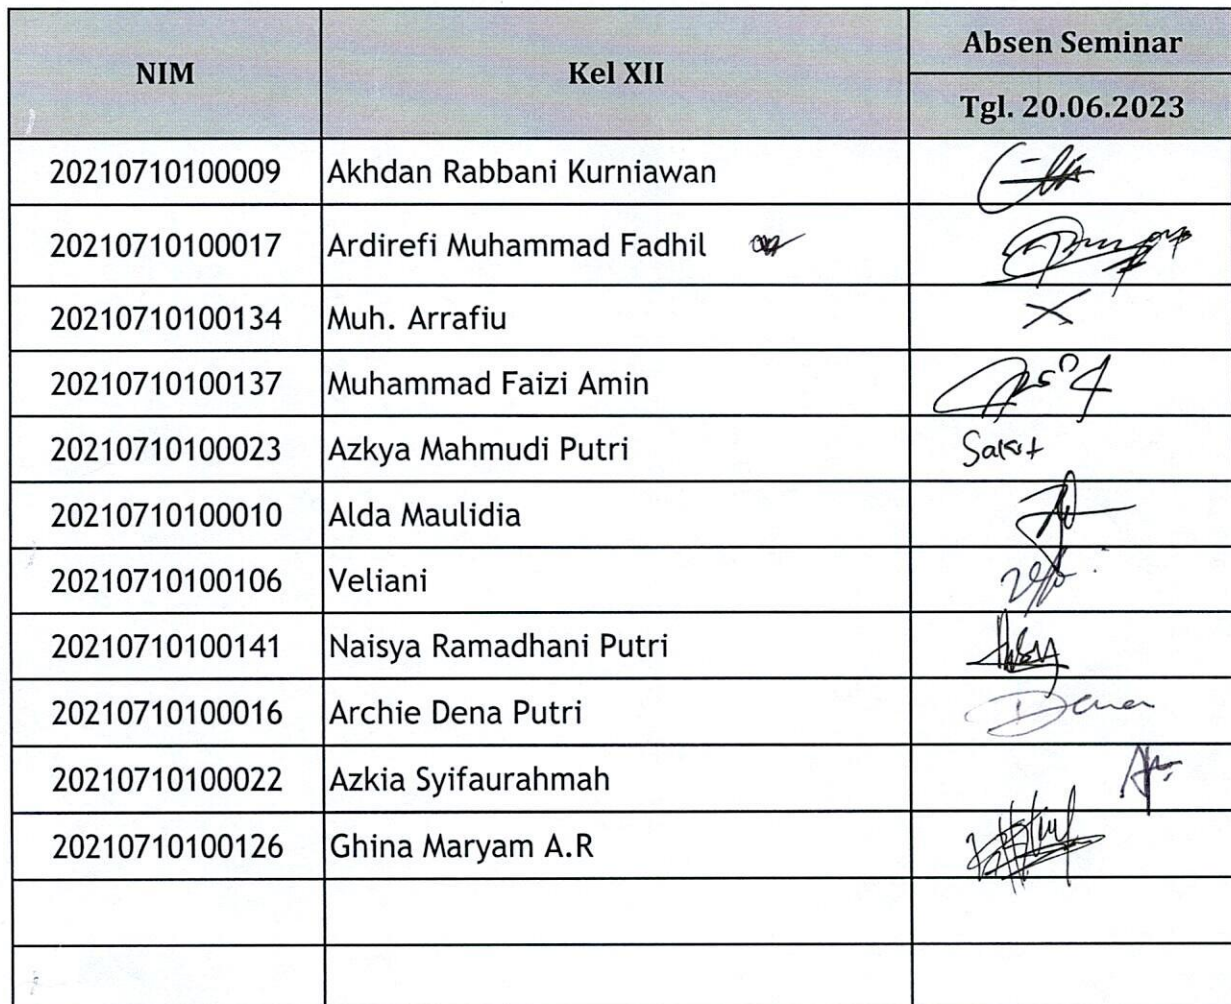 NIM Kel XII Absen Seminar
Tgl. 20.06.2023
20210710100009 Akhdan Rabbani Kurniawan
20210710100017 Ardirefi Muhammad Fadhil
20210710100134 Muh. Arrafiu X
20210710100137 Muhammad Faizi Amin
20210710100023 Azkya Mahmudi Putri Sakit
20210710100010 Alda Maulidia
20210710100106 Veliani
20210710100141 Naisya Ramadhani Putri
20210710100016 Archie Dena Putri Dena
20210710100022 Azkia Syifaurahmah
20210710100126 Ghina Maryam A.R